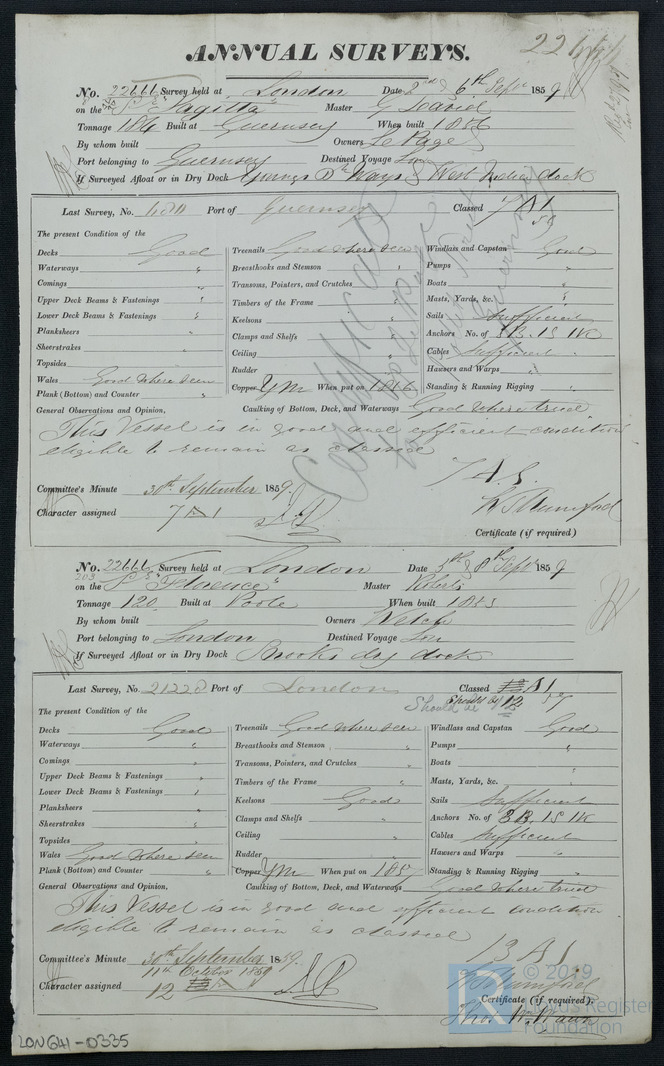 ANNUAL SURVEYS.
No. 22666 Survey held at London Date 2nd & 6th Septr 1859
on the "Sagitta" Master G
Tonnage 184 Built at Guernsey When built 1856
By whom built Owners Le Page
Port belonging to Guernsey Destined Voyage Lon
If Surveyed Afloat or in Dry Dock Youngs D Ways & West India dock
Last Survey, No. Port of Guernsey Classed 7 A1
The present Condition of the
58
Decks Good Treenails Good where seen Windlass and Capstan Good
Waterways " Breasthooks and Stemson " Pumps "
Comings " Transoms, Pointers, and Crutches Boats "
Upper Deck Beams & Fastenings " Timbers of the Frame " Masts, Yards, &c. "
Lower Deck Beams & Fastenings " Keelsons Sails Sufficient
Planksheers Clamps and Shelfs " Anchors No. of 3B. 1S 1K
Sheerstrakes Ceiling Cables Sufficient
Topsides Rudder Hawsers and Warps "
Wales Good where seen Copper YM When put on 1856 Standing & Running Rigging "
Plank (Bottom) and Counter "
General Observations and Opinion, Caulking of Bottom, Deck, and Waterways Good where tried
This Vessel is in good and efficient condition
eligible to remain as classed
7 A1.
Committee's Minute 30th September 1859.
Character assigned 7 A1
Certificate (if required)
Certificate
No. 22666 Survey held at London Date 5th & 8th Septr 1859
203
on the "Florence" Master Roberts
Tonnage 120 Built at Poole When built 1853
By whom built Owners Welch
Port belonging to London Destined Voyage Lon
If Surveyed Afloat or in Dry Dock Brooks dry dock
Last Survey, No. 21220 Port of London Classed A1
The present Condition of the Should be 12 57
Decks Good Treenails Good where seen Windlass and Capstan Good
Waterways " Breasthooks and Stemson " Pumps "
Comings " Transoms, Pointers, and Crutches " Boats
Upper Deck Beams & Fastenings " Timbers of the Frame " Masts, Yards, &c.
Lower Deck Beams & Fastenings " Keelsons Good Sails Sufficient
Planksheers Clamps and Shelfs " Anchors No. of 3B. 1S 1K
Sheerstrakes " Ceiling Cables Sufficient
Topsides " Rudder Hawsers and Warps "
Wales Good where seen Copper YM When put on 1857 Standing & Running Rigging "
Plank (Bottom) and Counter "
General Observations and Opinion, Caulking of Bottom, Deck, and Waterways Good where tried
This Vessel is in good and efficient condition
eligible to remain as classed
13 A1
Committee's Minute 30th September 1859.
11th October 1859
Character assigned 12
Certificate (if required).
LON641-0335
© 2019
Lloyd's Register
Foundation